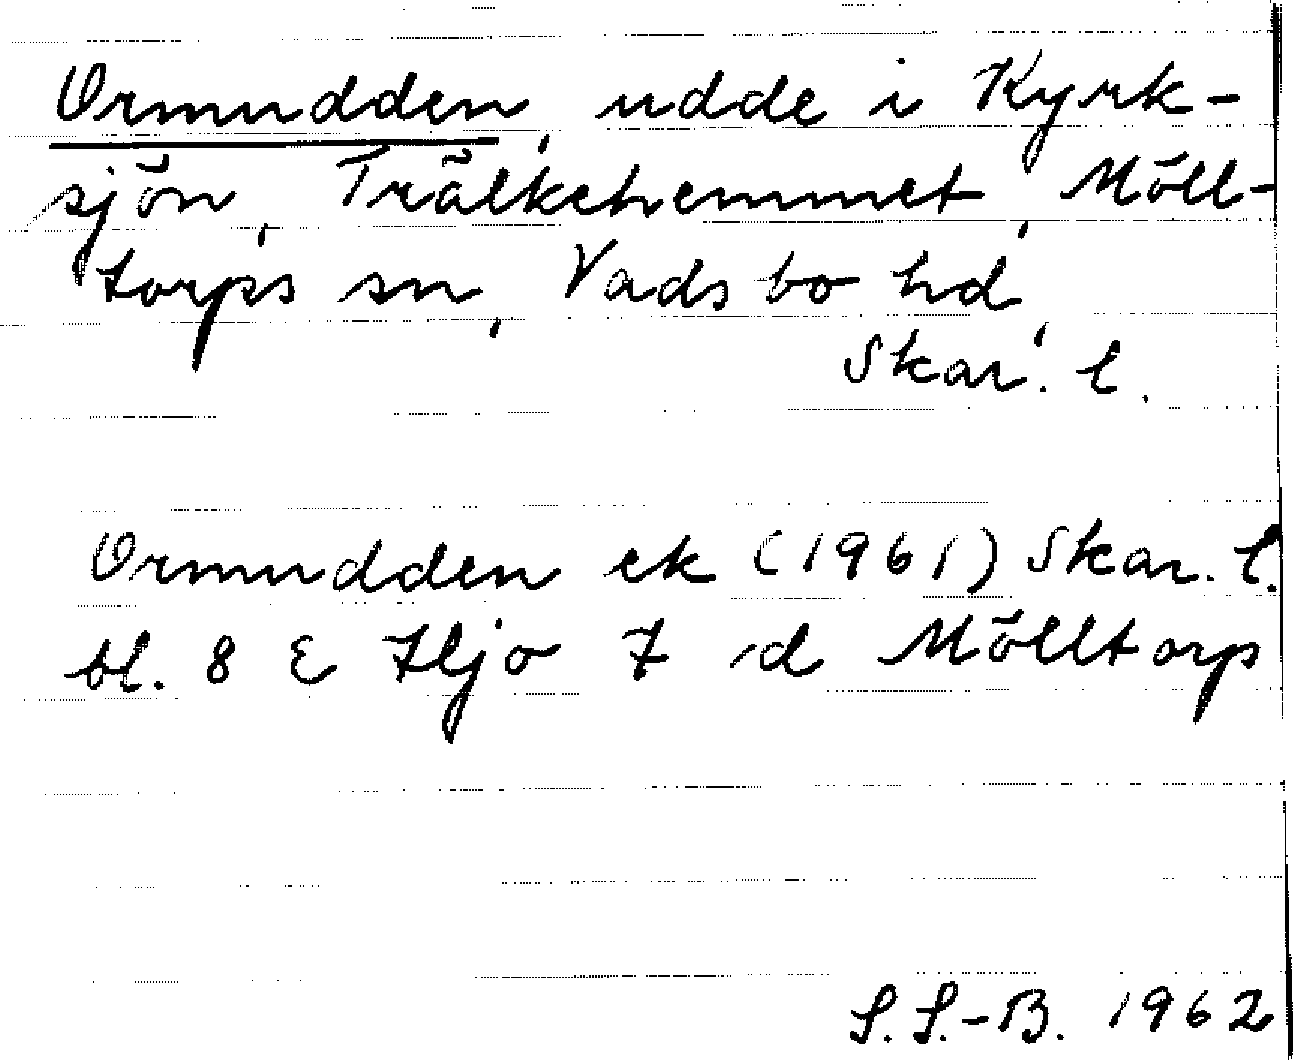 Ormudden, udde i Kyrk-
sjön, Trälkehemmet, Möll-
torps sn, Vadsbo hd,
Skar. l.
Ormudden ek (1961) Skar. l.
bl. 8 E Hjo 7 d Mölltorp
S. S.-B. 1962